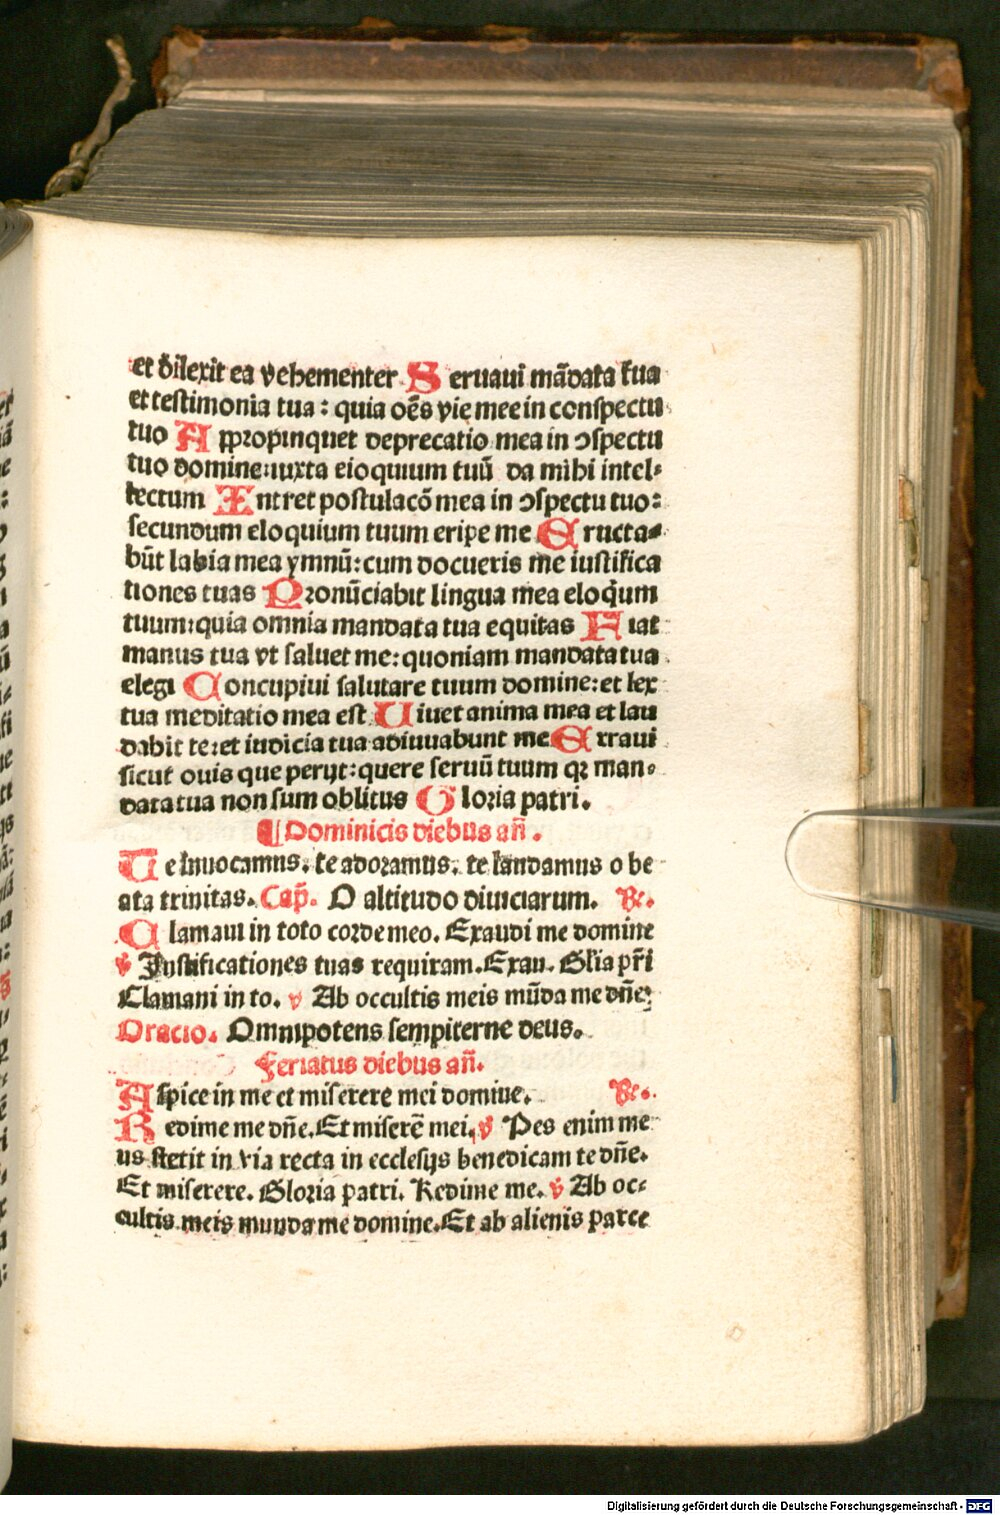 et dilexit ea vehementer Seruaui mādata tua
et testimonia tua: quia oēs vie mee in conspectu
tuo Appropinquet deprecatio mea in ↄspectu
tuo domine:iuxta eloquium tuū da mihi intel-
lectum Intret postulacō mea in ↄspectu tuo:
secundum eloquium tuum eripe me Eructa-
būt labia mea ymnū: cum docueris me iustifica
tiones tuas Pronūciabit lingua mea eloq̄um
tuum:quia omnia mandata tua equitas Fiat
manus tua vt saluet me:quoniam mandata tua
elegi Concupiui salutare tuum domine:et lex
tua meditatio mea est Uiuet anima mea et lau
dabit te:et iudicia tua adiuuabunt me Erraui
sicut ouis que perijt:quere seruū tuum qꝛ man-
data tua non sum oblitus Gloria patri.
¶ Dominicis diebus añ.
Te inuocamus. te adoramus. te laudamus o be
ata trinitas. Cap̄. O altitudo diuiciarum. ℞.
Clamaui in toto corde meo. Exaudi me domine
℣ Justificationes tuas requiram. Exau. Glia pr̄i
Clamani in to. ℣ Ab occultis meis mūda me dñe:
Oracio. Omnipotens sempiterne deus.
Feriatus diebus añ.
Aspice in me et miserere mei domine. ℞.
Redime me dñe. Et miserē mei. ℣ Pes enim me
us stetit in via recta in ecclesijs benedicam te dñe.
Et miserere. Gloria patri. Redime me. ℣ Ab oc-
cultis meis munda me domine. Et ab alienis parce
Digitalisierung gefördert durch die Deutsche Forschungsgemeinschaft - DFG